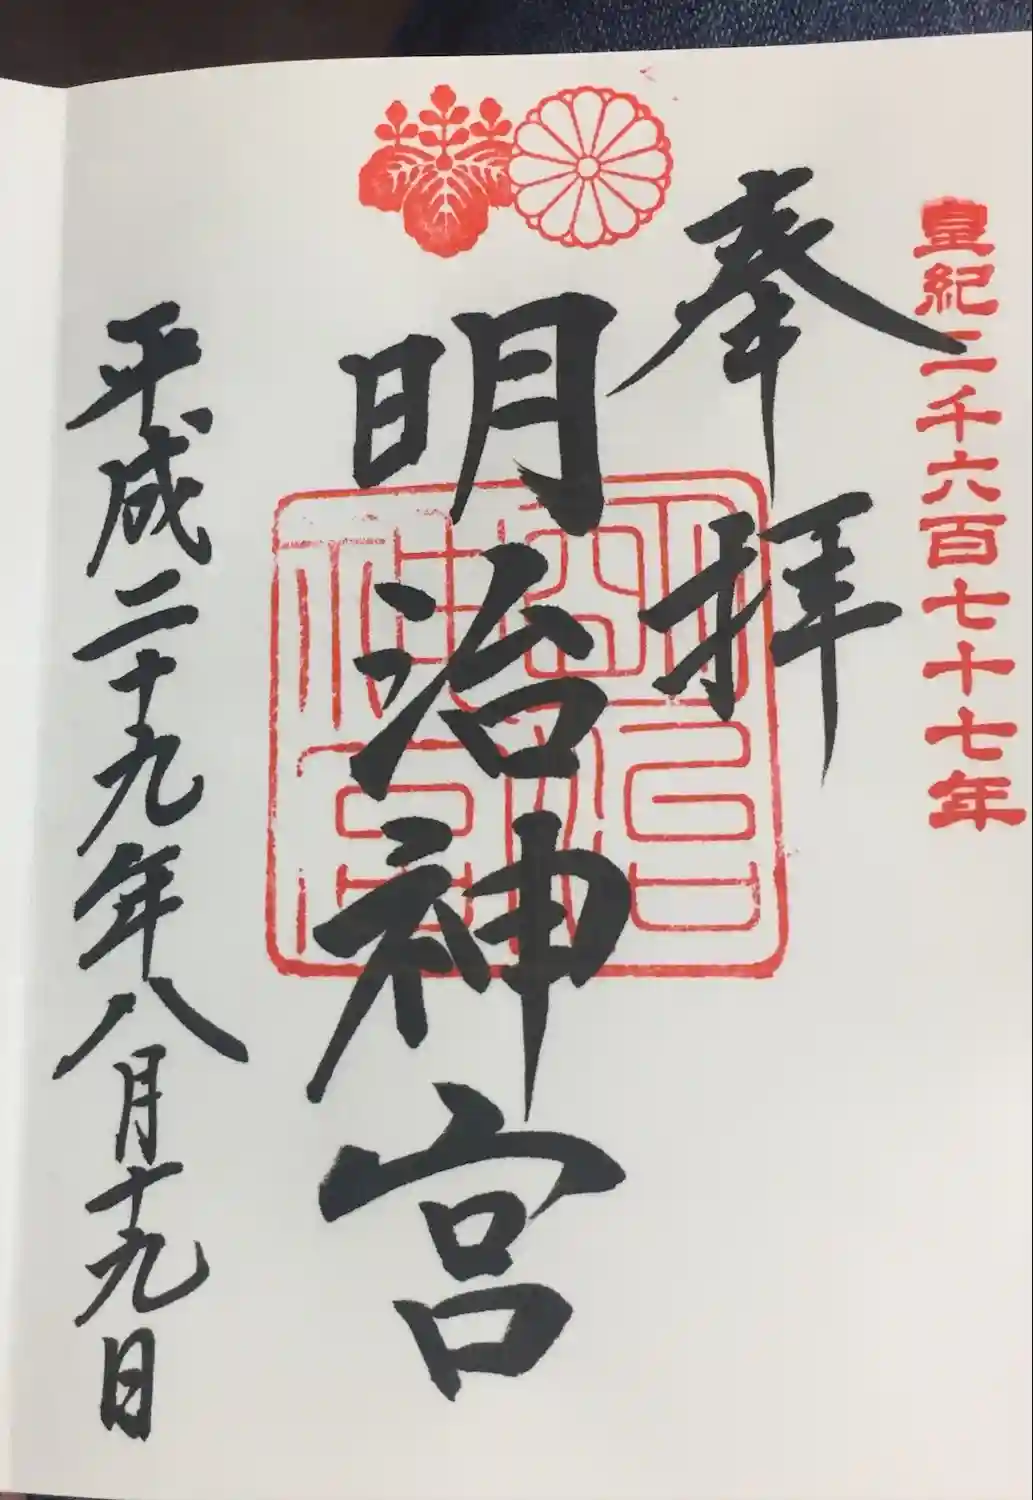 皇紀二千六百七十七年
奉拝
明治神宮
平成二十九年八月十九日
明治神宮